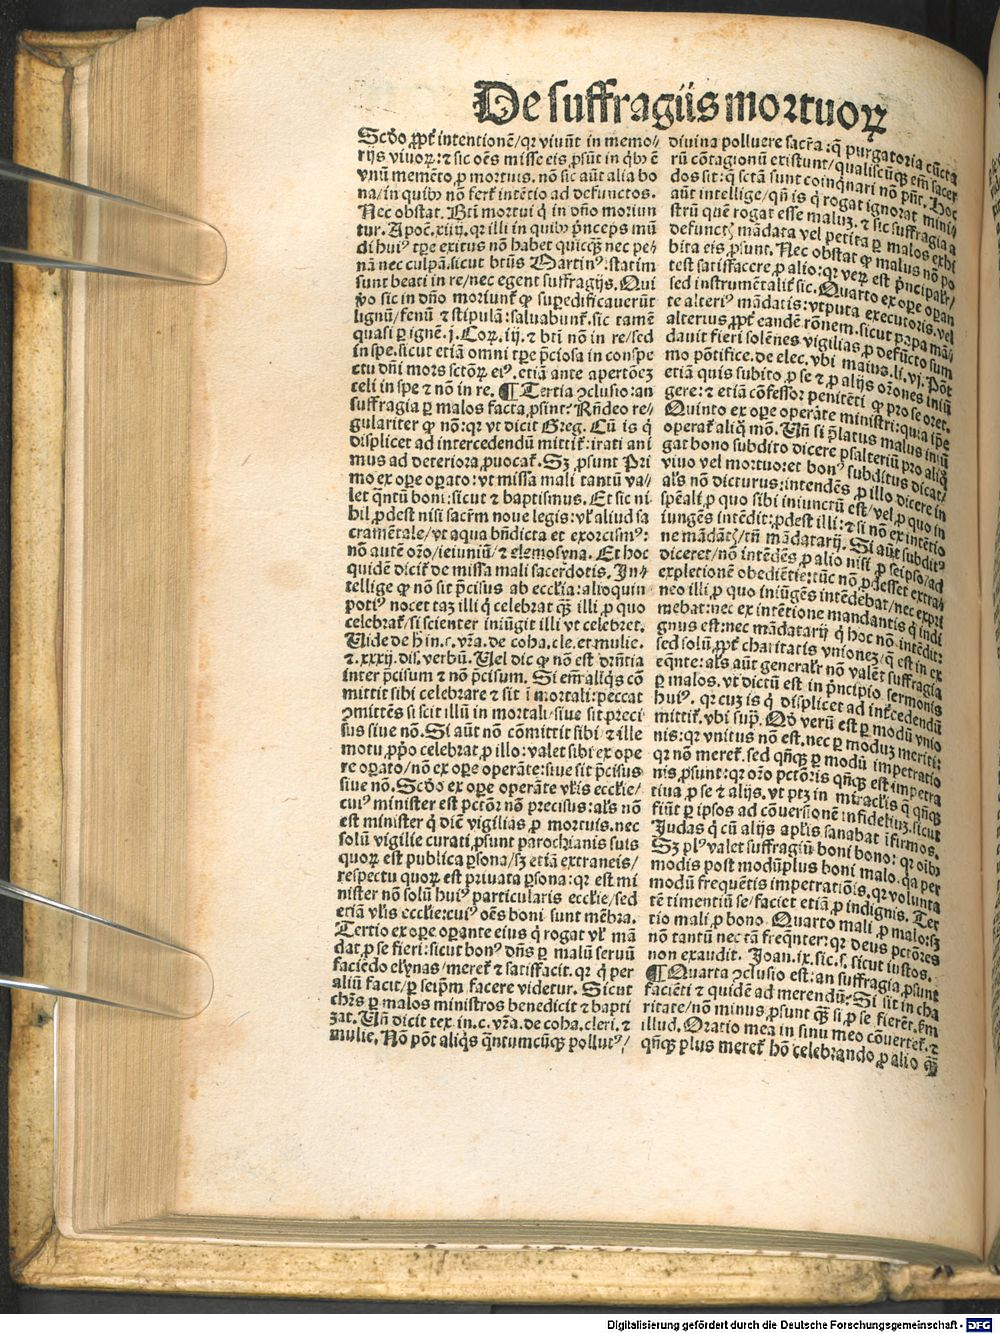 De suffragiis mortuoꝝ
Scďo ꝓpt̄ intentionē/qꝛ viuūt in memo/
rijs viuoꝝ: ⁊ sic oēs misse eis ꝓsūt in qͥbꝰ ē
vnū memēto ꝓ mortuis. nō sic aūt alia bo
na/in quibꝰ nō fert̄ intētio ad defunctos.
Nec obstat. Bt̄i mortui q̇ in dn̄o moriun
tur. Apoc̄. xiiij. qꝛ illi in quibꝰ p̄nceps mū
di huiꝰ tp̄e exitus nō habet quicq̄ꝫ nec pe/
nā nec culpā. sicut bt̄us Martinꝰ: statim
sunt beati in re/nec egent suffragijs. Qui
ꝟo sic in dn̄o moriunt̄ ꝙ suꝑedificauerūt
lignū/fenū ⁊ stipulā: saluabunt̄. sic tamē
quasi ꝑ ignē. j. Coꝝ. iij. ⁊ bt̄i nō in re/sed
in spe. sicut etiā omni tp̄e p̄ciosa in conspe
ctu dn̄i mors sctōꝝ eiꝰ. etiā ante apertōeꝫ
celi in spe ⁊ nō in re. ¶ Tertia ꝯclusio: an
suffragia ꝑ malos facta ꝓsint? Rn̄deo re/
gulariter ꝙ nō: qꝛ vt dicit Greg. Cū is q̇
displicet ad intercedendū mittit̄: irati ani
mus ad deteriora ꝓuocat̄. Sꝫ ꝓsunt Pri
mo ex oꝑe oꝑato: vt missa mali tantū va/
let q̄ntū boni: sicut ⁊ baptismus. Et sic ni
hil ꝓdest nisi sacr̄m noue legis: vl̄ aliud sa
cramētale/vt aqua bn̄dicta et exorcismꝰ:
nō autē or̄o/ieiuniū/⁊ elemosyna. Et hoc
quidē dicit̄ de missa mali sacerdotis. In/
tellige ꝙ nō sit p̄cisus ab ecclīa: alioquin
potiꝰ nocet taꝫ illi q̇ celebrat q̄ꝫ illi ꝓ quo
celebrat̄/si scienter iniūgit illi vt celebret.
Uide de h̄ in. c. vr̄a. de coha. cle. et mulie.
⁊. xxxij. dis. verbū. Uel dic ꝙ nō est dr̄ntia
inter p̄cisum ⁊ nō p̄cisum. Si em̄ aliqͥs cō
mittit sibi celebrare ⁊ sit ī mortali: peccat
ꝯmittēs si scit illū in mortali/siue sit preci
sus siue nō. Si aūt nō cōmittit sibi ⁊ ille
motu ꝓpͥo celebrat ꝓ illo: valet sibi ex ope
re oꝑato/nō ex oꝑe operāte: siue sit p̄cisus
siue nō. Scďo ex oꝑe operāte vl̄is ecclīe/
cuiꝰ minister est pctōr nō precisus: al̄s nō
est minister q̇ dic̄ vigilias ꝓ mortuis. nec
solū vigilie curati ꝓsunt parochianis suis
quoꝝ est publica ꝑsona/sꝫ etiā extraneis/
respectu quoꝝ est priuata ꝑsona: qꝛ est mi
nister nō solū huiꝰ particularis ecclīe/sed
etiā vl̄is ecclīe: cuiꝰ oēs boni sunt mēbra.
Tertio ex oꝑe oꝑante eius q̇ rogat vl̄ mā
dat ꝓ se fieri: sicut bonꝰ dn̄s ꝑ malū seruū
faciēdo el̄ynas/meret̄ ⁊ satisfacit. qꝛ q̇ per
aliū facit/ꝑ seip̄m facere videtur. Sicut
chr̄s ꝑ malos ministros benedicit ⁊ bapti
zat. Un̄ dicit tex. in. c. vr̄a. de coha. cleri. ⁊
mulie. Nō pōt aliqͥs q̄ntumcūqꝫ pollutꝰ/
diuina polluere sacr̄a: q̄ purgatoria cūcta
rū cōtagionū existunt/qualiscūqꝫ em̄ sacer
dos sit: q̄ sctā sunt coinqͥnari nō pn̄t. Hoc
aūt intellige/qn̄ is q̇ rogat ignorat mini/
strū quē rogat esse maluꝫ. ⁊ sic suffragia a
defunctꝭ mādata vel petita ꝑ malos exhi
bita eis ꝓsunt. Nec obstat ꝙ malus nō po
test satisfacere ꝓ alio: qꝛ veꝝ est p̄ncipalr̄/
sed instrumētalit̄ sic. Quarto ex oꝑe oꝑan
te alteriꝰ mādatis: vtputa executoris. vel
alterius ꝓpt̄ eandē rōnem. sicut papa mā/
dauit fieri solēnes vigilias ꝓ defūcto sum
mo pōtifice. de elec. vbi maius. li. vj. Pōt
etiā quis subito ꝓ se ⁊ ꝓ alijs or̄ones iniū
gere: ⁊ etiā cōfessor penitēti ꝙ pro se oret.
Quinto ex oꝑe operāte ministri: quia ip̄e
operat̄ aliq̇ mō. Un̄ si p̄latus malus iniū
gat bono subdito dicere psalteriū pro aliq̇
viuo vel mortuo: et bonꝰ subditus dicat/
al̄s nō dicturus: intendēs ꝓ illo dicere in
spēali ꝓ quo sibi iniunctū est/vel ꝓ quo in
iungēs intēdit: ꝓdest illi: ⁊ si nō ex intētio
ne mādātꝭ/tn̄ mādatarij. Si aūt subditꝰ
diceret/nō intēdēs ꝓ alio nisi ꝓ seipso/ad
expletionē obediētie: tūc nō ꝓdesset extra/
neo illi ꝓ quo iniūgēs intēdebat/nec expri
mebat: nec ex intētione mandantis q̇ indi
gnus est: nec mādatarij q̇ hoc nō intēdit:
sed solū ꝓpt̄ charitatis vnioneꝫ/q̄ est in ex
eqn̄te: al̄s aūt generalr̄ nō valēt suffragia
ꝑ malos. vt dictū est in p̄ncipio sermonis
huiꝰ. qꝛ cuꝫ is q̇ displicet ad int̄cedendū
mittit̄. vbi sup̄. Qď verū est ꝑ modū vnio
nis: qꝛ vnitus nō est. nec ꝑ moduꝫ meriti:
qꝛ nō meret̄. sed qn̄qꝫ ꝑ modū impetratio
nis ꝓsunt: qꝛ or̄o pctōris qn̄qꝫ est impetra
tiua ꝓ se ⁊ alijs. vt ptꝫ in mirac̄lis q̄ qn̄qꝫ
fiūt ꝑ ipsos ad cōuersionē infideliuꝫ. sicut
Judas q̇ cū alijs apl̄is sanabat īfirmos.
Sꝫ plꝰ valet suffragiū boni bono: qꝛ oībꝰ
modis post modū plus boni malo. q̇a per
modū frequētis impetratiōis. qꝛ volunta
tē timentiū se/faciet etiā ꝓ indignis. Ter
tio mali ꝓ bono. Quarto mali ꝓ malo: sꝫ
nō tantū nec tā freq̄nter: qꝛ deus pctōres
non exaudit. Joan. ix. sic. s. sicut iustos.
¶ Quarta ꝯclusio est: an suffragia ꝓsunt
faciēti ⁊ quidē ad merendū: Si sit in cha
ritate/nō minus ꝓsunt q̄ꝫ si ꝓ se fierēt. ẜm
illud. Oratio mea in sinu meo cōuertet̄. ⁊
qn̄qꝫ plus meret̄ hō celebrando ꝓ alio q̄ꝫ
Digitalisierung gefördert durch die Deutsche Forschungsgemeinschaft - DFG